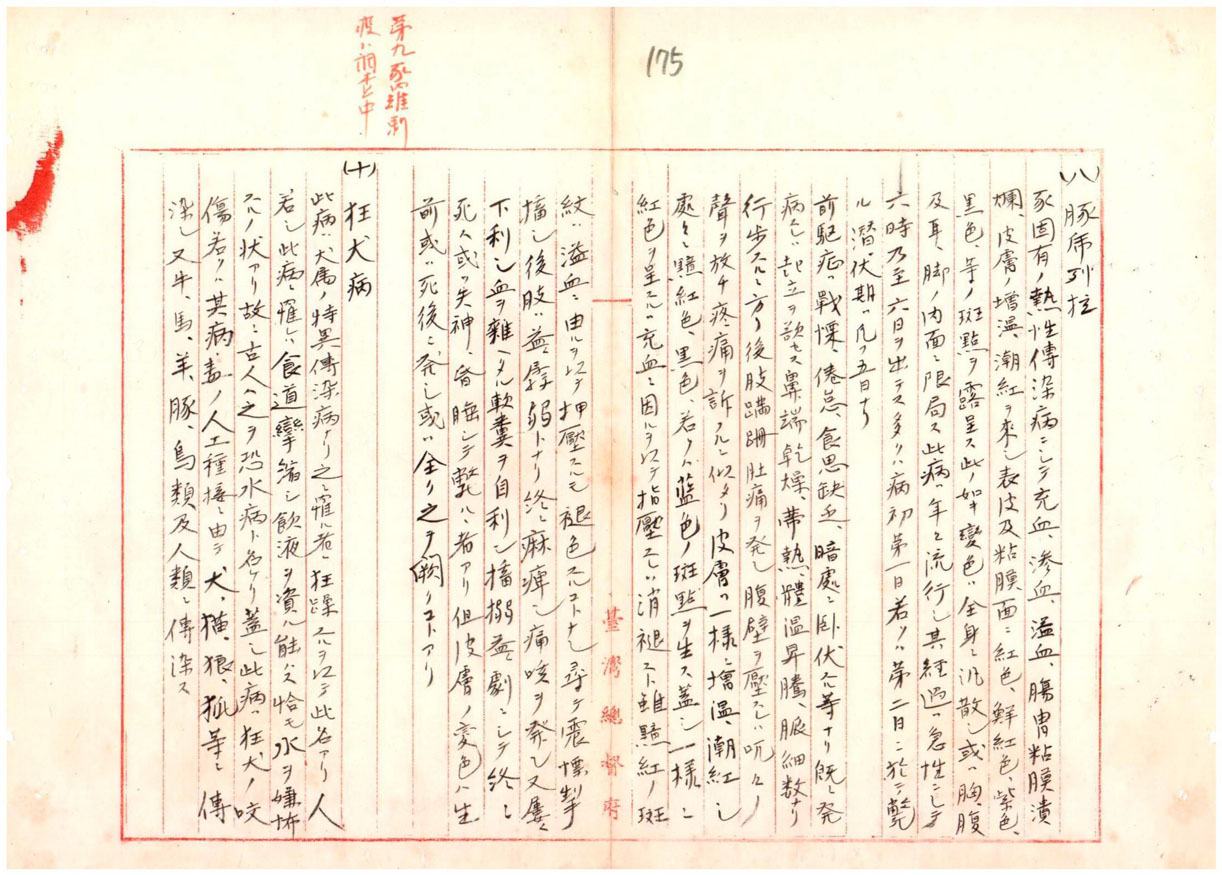 175
第九豚羅斯
疫ハ前止中
(八)豚虎列拉
豕固有ノ熱性傳染病ニシテ充血、滲血、溢血、腸胃粘膜潰
爛、皮膚ノ增温、潮紅ヲ來シ表皮及粘膜面ニ紅色、鮮紅色、紫色、
黒色等ノ斑點ヲ露呈ス此ノ如キ變色ハ全身ニ汎散シ或ハ胸腹
及耳、脚ノ内面ニ限局ス此病ハ年々流行シ其経過ハ急性ニシテ
六時乃至六日ヲ出テス多クハ病初第一日若クハ第二日ニ於テ斃
ル潜伏期ハ凡ソ五日ナリ
前駆症ハ戰慄、倦怠、食思缺乏、暗處ニ臥伏スル等ナリ既ニ発
病スレハ起立ヲ欲セス鼻端乾燥、帯熱、體温昇騰、脈細数ナリ
行歩スルニ方リ後肢蹣跚肚痛ヲ発シ腹壁ヲ壓スレハ呻々ノ
聲ヲ放チ疼痛ヲ訴フルニ似タリ皮膚ハ一様ニ增温、潮紅シ
處々ニ黯紅色、黒色、若クハ藍色ノ斑點ヲ生ス蓋シ一様ニ
紅色ヲ呈スルハ充血ニ因ルヲ以テ指壓スレハ消褪スト雖黯紅ノ斑
紋ハ溢血ニ由ルヲ以テ押壓スルモ褪色スルコトナシ尋テ震慄掣
搐シ後肢ハ益々孱弱トナリ終ニ麻痺シ痛咳ヲ発シ又屢々
下利シ血ヲ雜ヘタル軟糞ヲ自利シ搐搦益々劇ニシテ終ニ
死ス或ハ失神、昏睡シテ斃ルヽ者アリ但皮膚ノ変色ハ生
前或ハ死後ニ発シ或ハ全ク之ヲ闕クコトアリ
(十)狂犬病
此病ハ犬属ノ特異傳染病ナリ之ニ罹ル者ハ狂躁スルヲ以テ此名アリ人
若シ此病ニ罹レハ食道攣縮シ飲液ヲ資ル能ハス恰モ水ヲ嫌怖
スルノ状アリ故ニ古人ハ之ヲ恐水病ト名ケリ蓋シ此病ハ狂犬ノ咬
傷若クハ其病毒ノ人工種接ニ由テ犬、猫、狼、狐等ニ傳
染シ又牛、馬、羊、豚、鳥類及人類ニ傳染ス
臺灣總督府